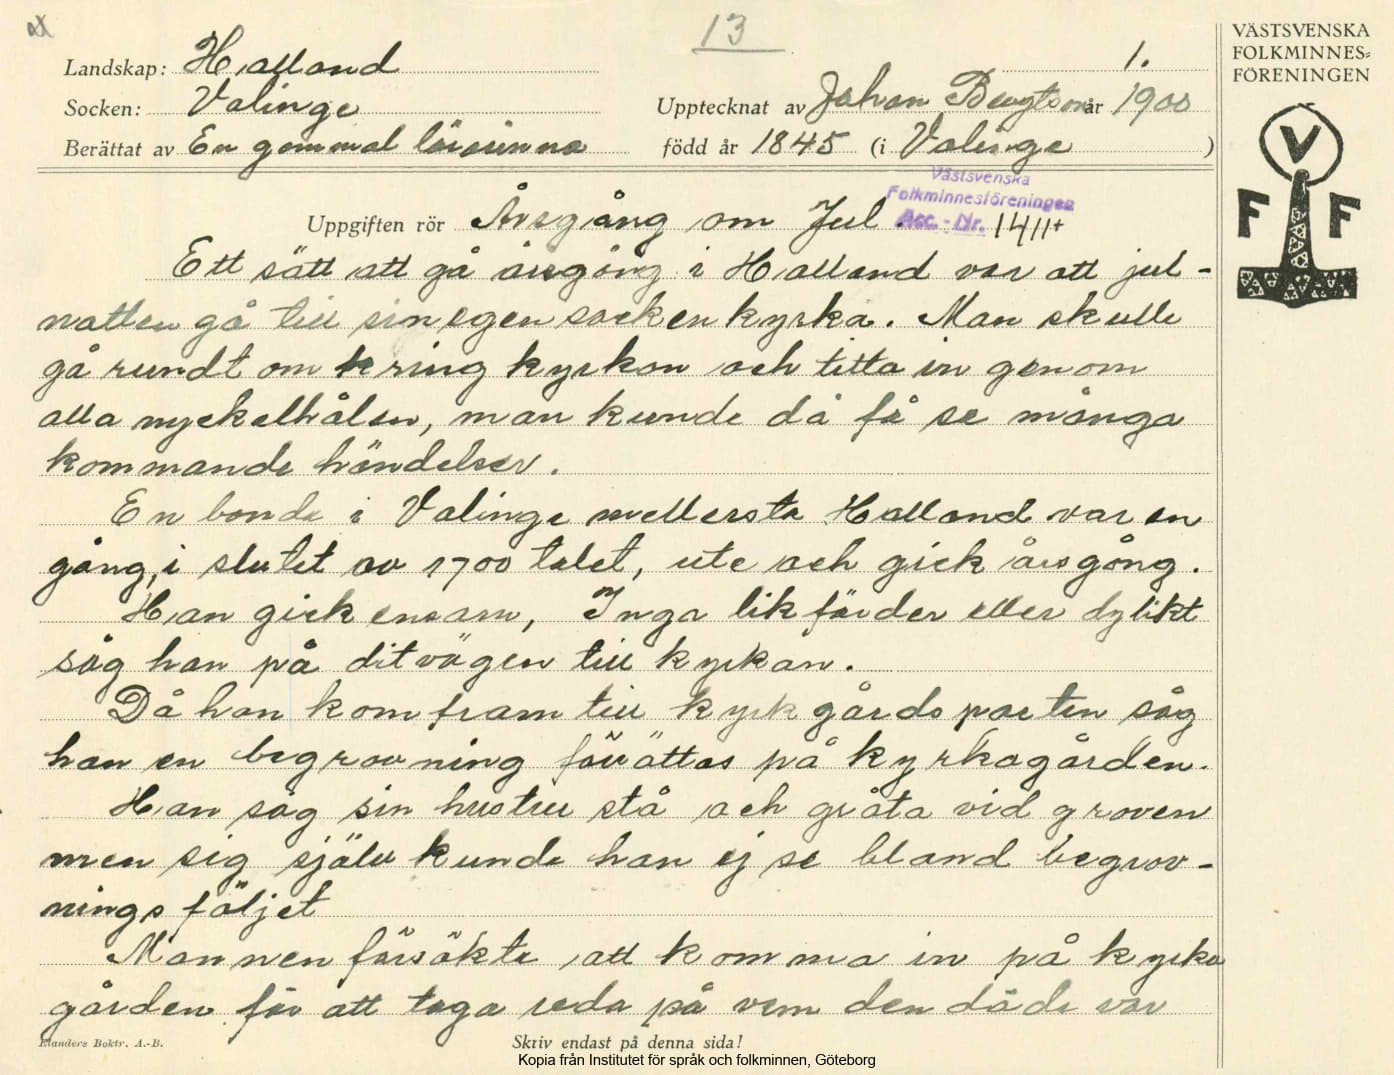 13
1.
VÄSTSVENSKA
FOLKMINNES=
FÖRENINGEN
V
F F
Landskap: Halland
Socken: Valinge
Upptecknat av Johan Bengtson år 1900
Berättat av En gammal lärarinna
född år 1845 (i Valinge )
Västsvenska
Folkminnesföreningen
Acc. - Nr. 1411+
Uppgiften rör Årsgång om Jul.
Ett sätt att gå årsgång i Halland var att jul-
natten gå till sin egen sockenkyrka. Man skulle
gå rundt om kring kyrkan och titta in genom
alla nyckelhålen, man kunde då få se många
kommande händelser.
En bonde i Valinge mellersta Halland var en
gång, i slutet av 1700 talet, ute och gick årsgång.
Han gick ensam, Inga likfärder eller dylikt
såg han på ditvägen till kyrkan.
Då han kom fram till kyrkgårdsporten såg
han en begravning förättas på kyrkagården.
Han såg sin hustru stå och gråta vid graven
men sig själv kunde han ej se bland begrav-
nings följet
Mannen försökte att komma in på kyrko
gården för att taga reda på vem den döde var
Elanders Boktr. A.-B.
Skriv endast på denna sida!
Kopia från Institutet för språk och folkminnen, Göteborg